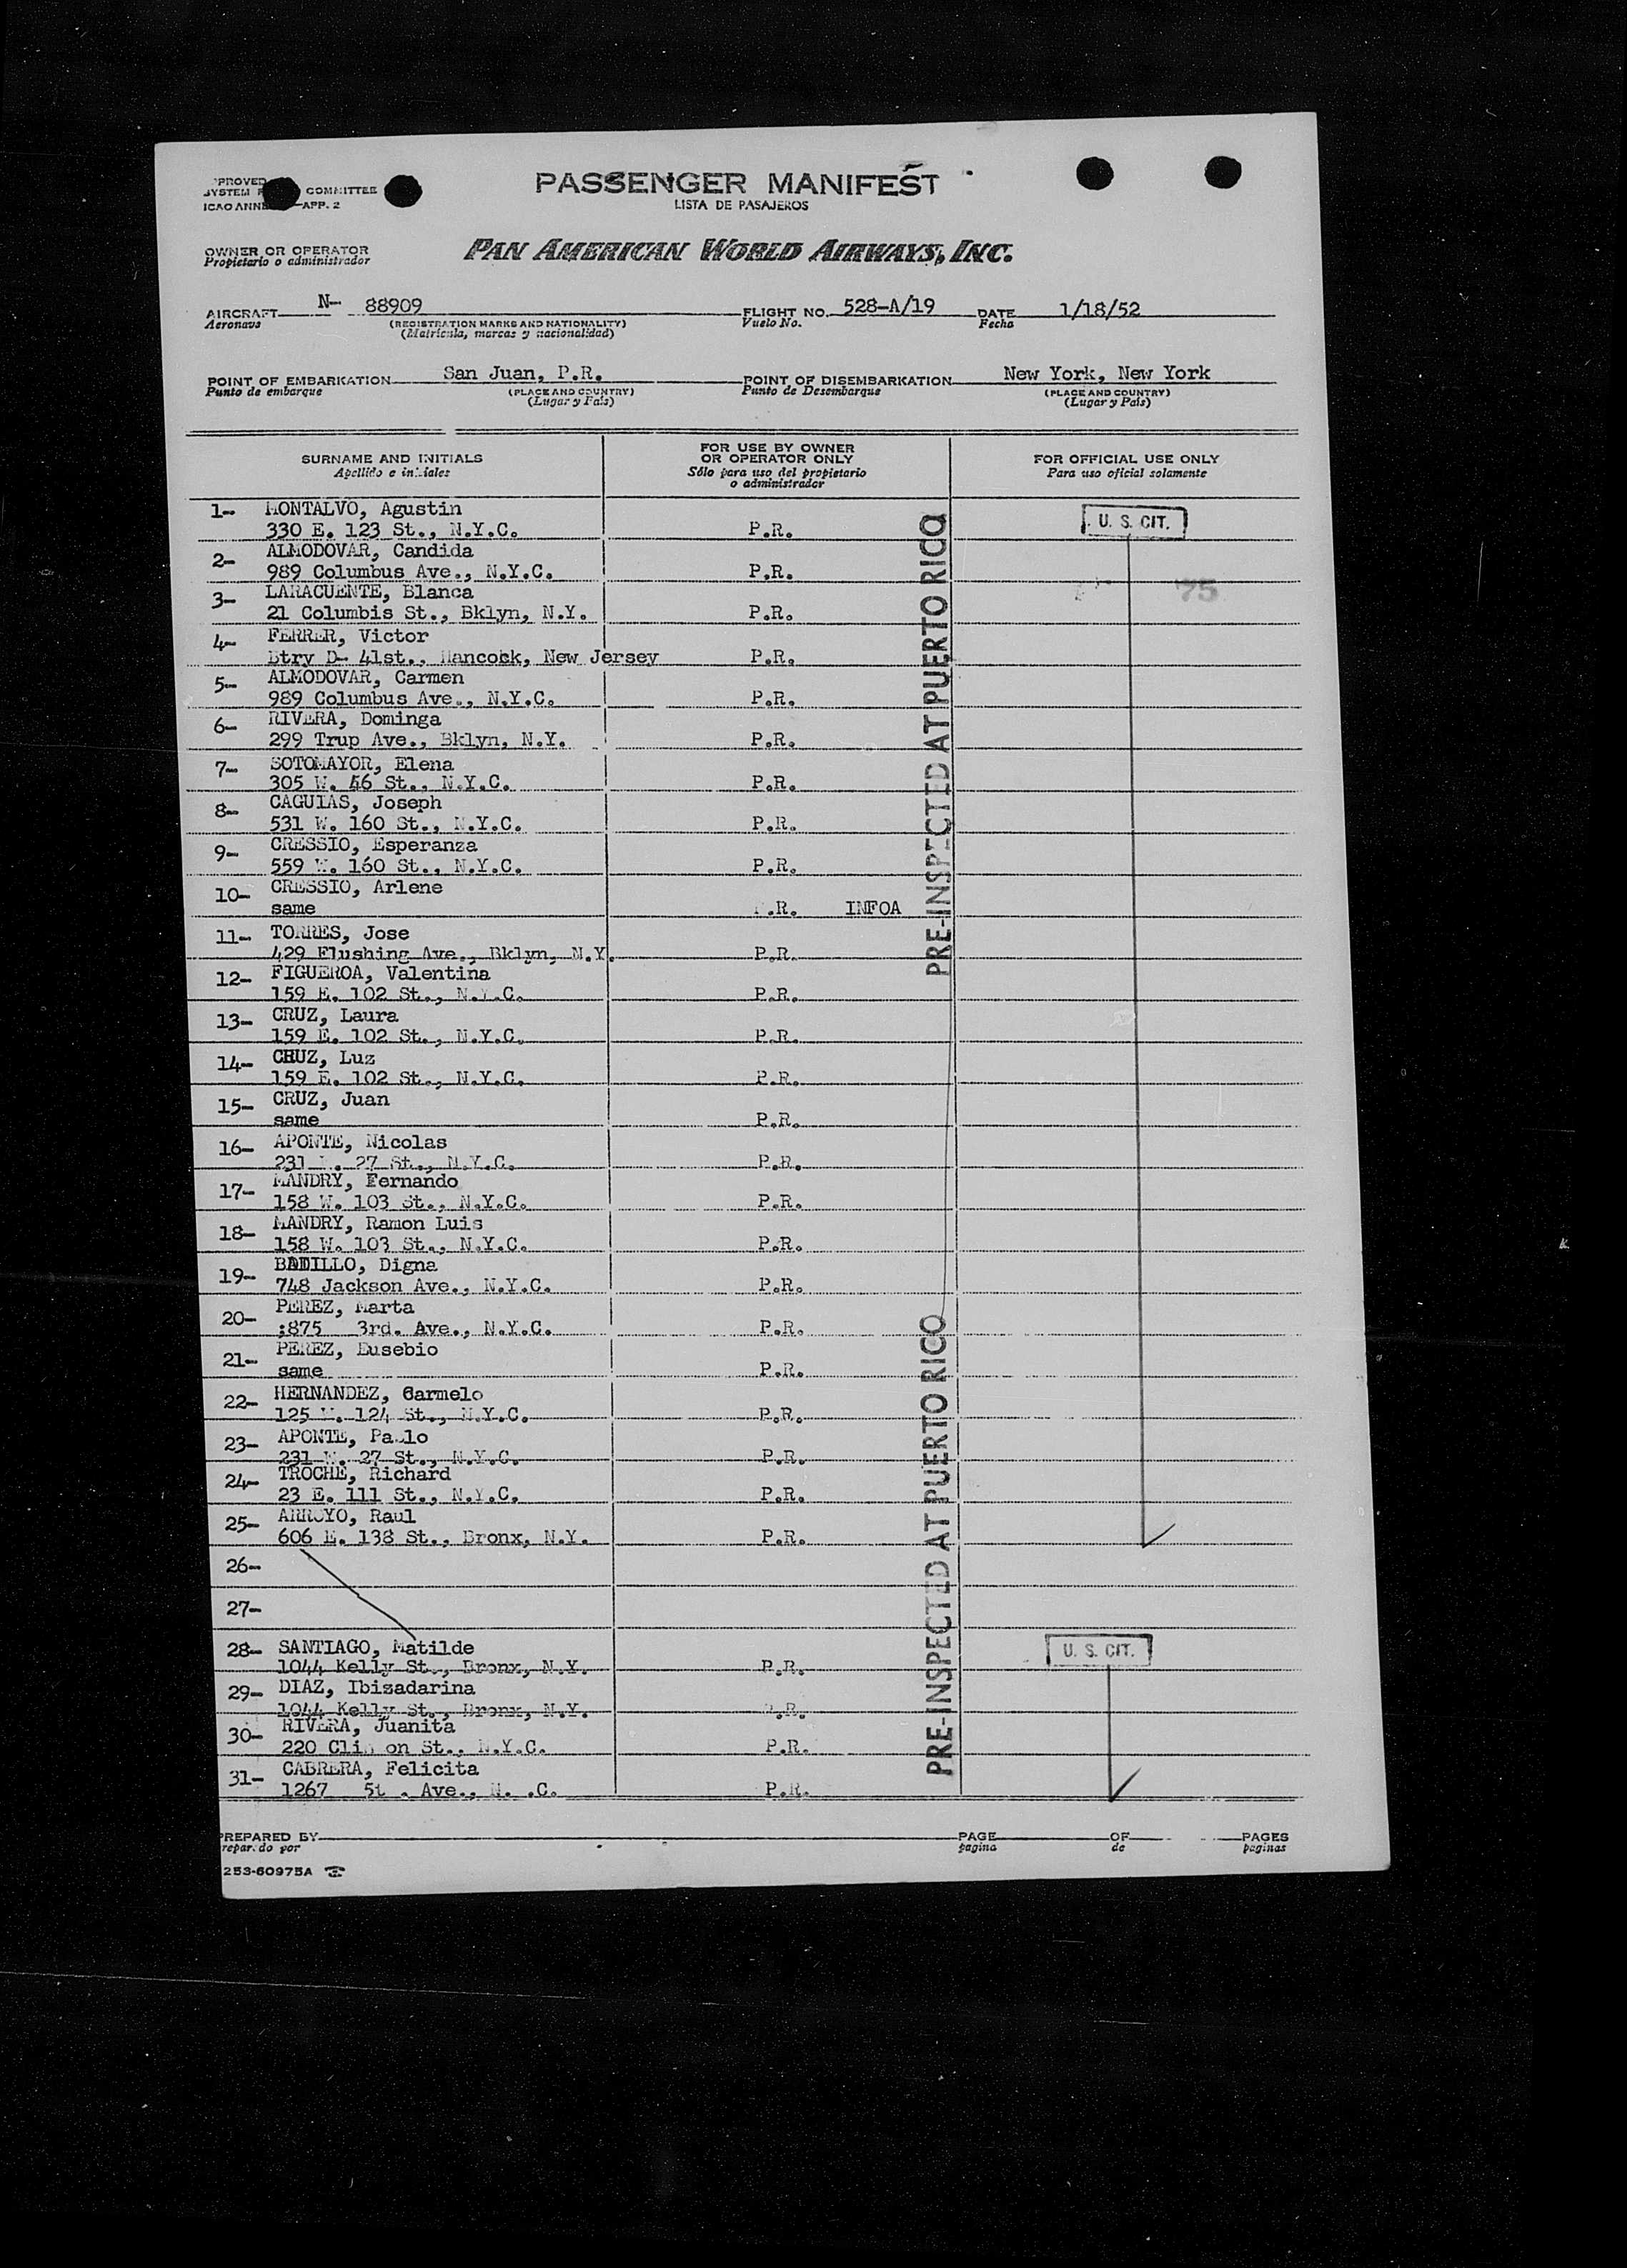 PASSENGER MANIFEST
LISTA DE PASAJEROS
COMMITTEE
ICAO ANNE APP. 2
OWNER OR OPERATOR
Propietario o administrador
PAN AMERICAN WORLD AIRWAYS, INC.
AIRCRAFT N- 88909 FLIGHT NO. 528-A/19 DATE 1/18/52
Aeronave (REGISTRATION MARKS AND NATIONALITY) Vuelo No. Fecha
(Matrícula, marcas y nacionalidad)
POINT OF EMBARKATION San Juan, P.R. POINT OF DISEMBARKATION New York, New York
Punto de embarque (PLACE AND COUNTRY) Punto de Desembarque (PLACE AND COUNTRY)
(Lugar y País) (Lugar y País)
SURNAME AND INITIALS
Apellido e iniciales
FOR USE BY OWNER
OR OPERATOR ONLY
Sólo para uso del propietario
o administrador
FOR OFFICIAL USE ONLY
Para uso oficial solamente
1- MONTALVO, Agustin
330 E. 123 St., N.Y.C. P.R. U. S. CIT.
2- ALMODOVAR, Candida
989 Columbus Ave., N.Y.C. P.R.
75
3- LARACUENTE, Blanca
21 Columbis St., Bklyn, N.Y. P.R.
4- FERRER, Victor
Btry D- 41st., Hancock, New Jersey P.R.
5- ALMODOVAR, Carmen
989 Columbus Ave., N.Y.C. P.R.
6- RIVERA, Dominga
299 Trup Ave., Bklyn, N.Y. P.R.
7- SOTOMAYOR, Elena
305 W. 46 St., N.Y.C. P.R.
8- CAGUIAS, Joseph
531 W. 160 St., N.Y.C. P.R.
9- CRESSIO, Esperanza
559 W. 160 St., N.Y.C. P.R.
10- CRESSIO, Arlene
same P.R. INFOA
11- TORRES, Jose
429 Flushing Ave., Bklyn, N.Y. P.R.
12- FIGUEROA, Valentina
159 E. 102 St., N.Y.C. P.R.
13- CRUZ, Laura
159 E. 102 St., N.Y.C. P.R.
14- CRUZ, Luz
159 E. 102 St., N.Y.C. P.R.
15- CRUZ, Juan
same P.R.
16- APONTE, Nicolas
231 27 St., N.Y.C. P.R.
17- MANDRY, Fernando
158 W. 103 St., N.Y.C. P.R.
18- MANDRY, Ramon Luis
158 W. 103 St., N.Y.C. P.R.
19- BADILLO, Digna
748 Jackson Ave., N.Y.C. P.R.
20- PEREZ, Marta
:875 3rd. Ave., N.Y.C. P.R.
21- PEREZ, Eusebio
same P.R.
22- HERNANDEZ, Carmelo
125 W. 124 St., N.Y.C. P.R.
23- APONTE, Pablo
231 W. 27 St., N.Y.C. P.R.
24- TROCHE, Richard
23 E. 111 St., N.Y.C. P.R.
25- ARROYO, Raul
606 E. 138 St., Bronx, N.Y. P.R.
26-
27-
28- SANTIAGO, Matilde
1044 Kelly St., Bronx, N.Y. P.R. U. S. CIT.
29- DIAZ, Ibizadarina
1044 Kelly St., Bronx, N.Y. P.R.
30- RIVERA, Juanita
220 Clinton St., N.Y.C. P.R.
31- CABRERA, Felicita
1267 Ave., N.Y.C. P.R.
PRE-INSPECTED AT PUERTO RICO
PRE-INSPECTED AT PUERTO RICO
PREPARED BY PAGE OF PAGES
Preparado por pagina de paginas
253-60975A